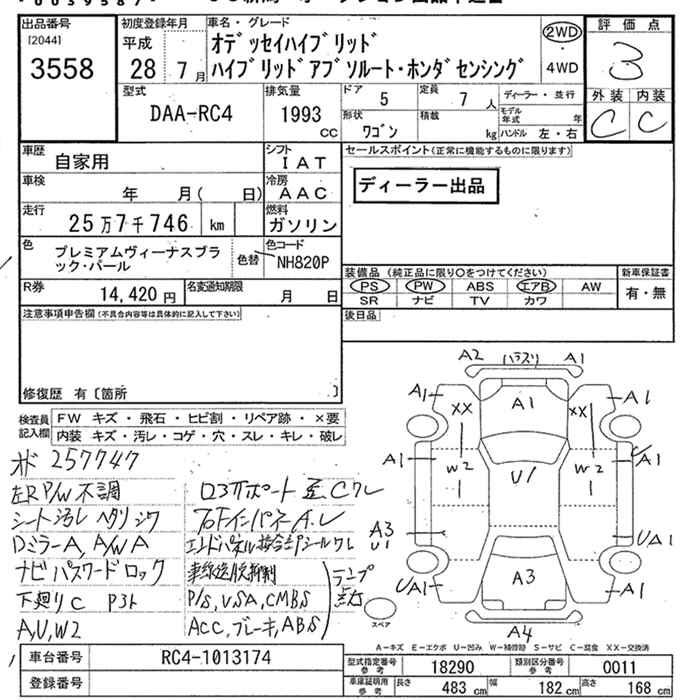 出品番号
[2044]
3558
初度登録年月
平成
28 7 月
車名・グレード
オデッセイハイブリッド
ハイブリッドアブソルート・ホンダセンシング
2WD
4WD
評価点
3
外装 内装
C C
型式
DAA-RC4
排気量
1993
CC
ドア 5
定員 7 人
ディーラー・並行
形状 ワゴン
積載 kg
モデル年式 年
ハンドル 左・右
車歴 自家用
シフト IAT
セールスポイント(正常に機能するものに限ります)
車検 年 月( 日)
冷房 AAC
ディーラー出品
走行 25万7千746 km
燃料 ガソリン
色 プレミアムヴィーナスブラック・パール
色替
色コード NH820P
R券 14,420 円
名変通知期限 月 日
装備品(純正品に限り○をつけてください)
新車保証書
PS PW ABS エアB AW
SR ナビ TV カワ
有・無
注意事項申告欄(不具合内容等は具体的に記入して下さい)
後日品
修復歴 有〔箇所 〕
検査員記入欄
FW キズ・飛石・ヒビ割・リペア跡・×要
内装 キズ・汚レ・コゲ・穴・スレ・キレ・破レ
257747
左R P/W 不調
シート汚レ ヘタリ シワ
DミラーA, A/W A
ナビ パスワード ロック
下廻りC
A,U,W2
P/S, VSA, CMBS
ACC, ブレーキ, ABS
ランプ点灯
A2 A1
A1 A1 A1
XX XX
A1 W2 U1 W2 A1
A3 U1
UA1
UA1 A3 A1
A4
スペア
A-キズ E-エクボ U-凹み W-ナミ S-サビ C-腐食 XX-交換済
車台番号 RC4-1013174
登録番号
型式指定番号 参考 18290
類別区分番号 参考 0011
車庫証明用 参考 長さ 483 cm 幅 182 cm 高さ 168 cm